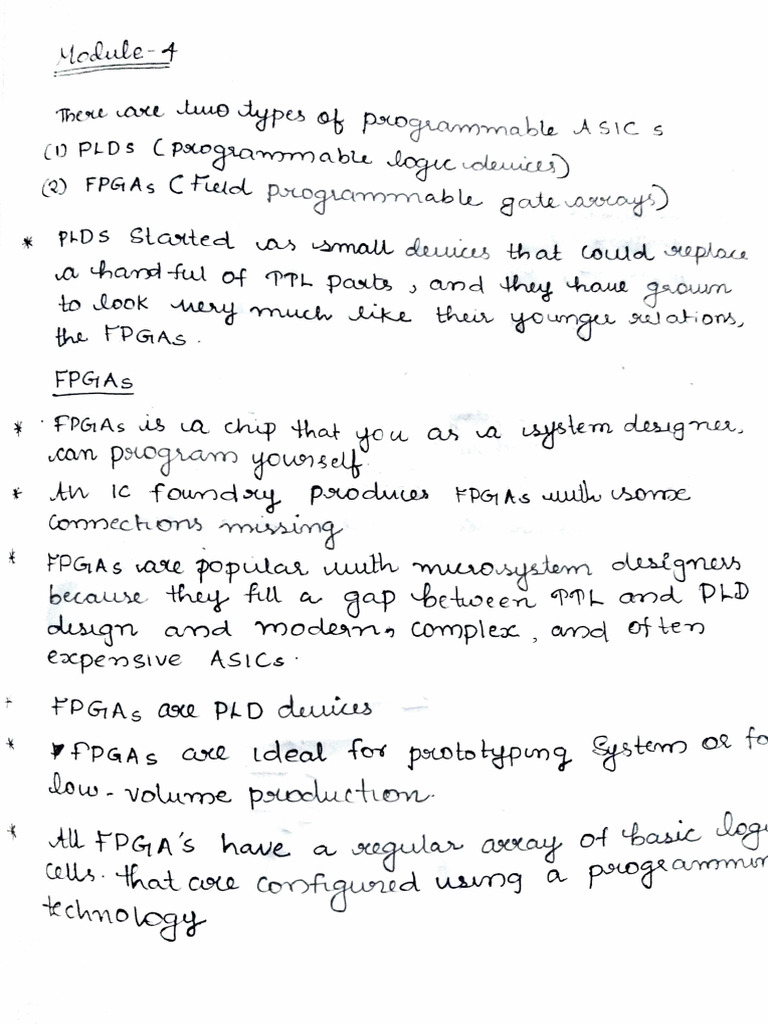 Module-4
There are two types of programmable ASIC s
(1) PLDS (programmable logic devices)
(2) FPGAs (Field programmable gate arrays)
* PLDS Started as small devices that could replace
a hand-ful of TTL parts, and they have grown
to look very much like their younger relations,
the FPGAs.
FPGAs
* FPGAs is a chip that you as a system designer,
can program yourself.
* An IC foundry produces FPGAs with some
connections missing
* FPGAs are popular with microsystem designers
because they fill a gap between TTL and PLD
design and modern, complex, and often
expensive ASICs.
FPGAs are PLD devices
* FPGAs are ideal for prototyping System or fo
low-volume production.
* All FPGA's have a regular array of basic logi
cells. that are configured using a programmin
technology